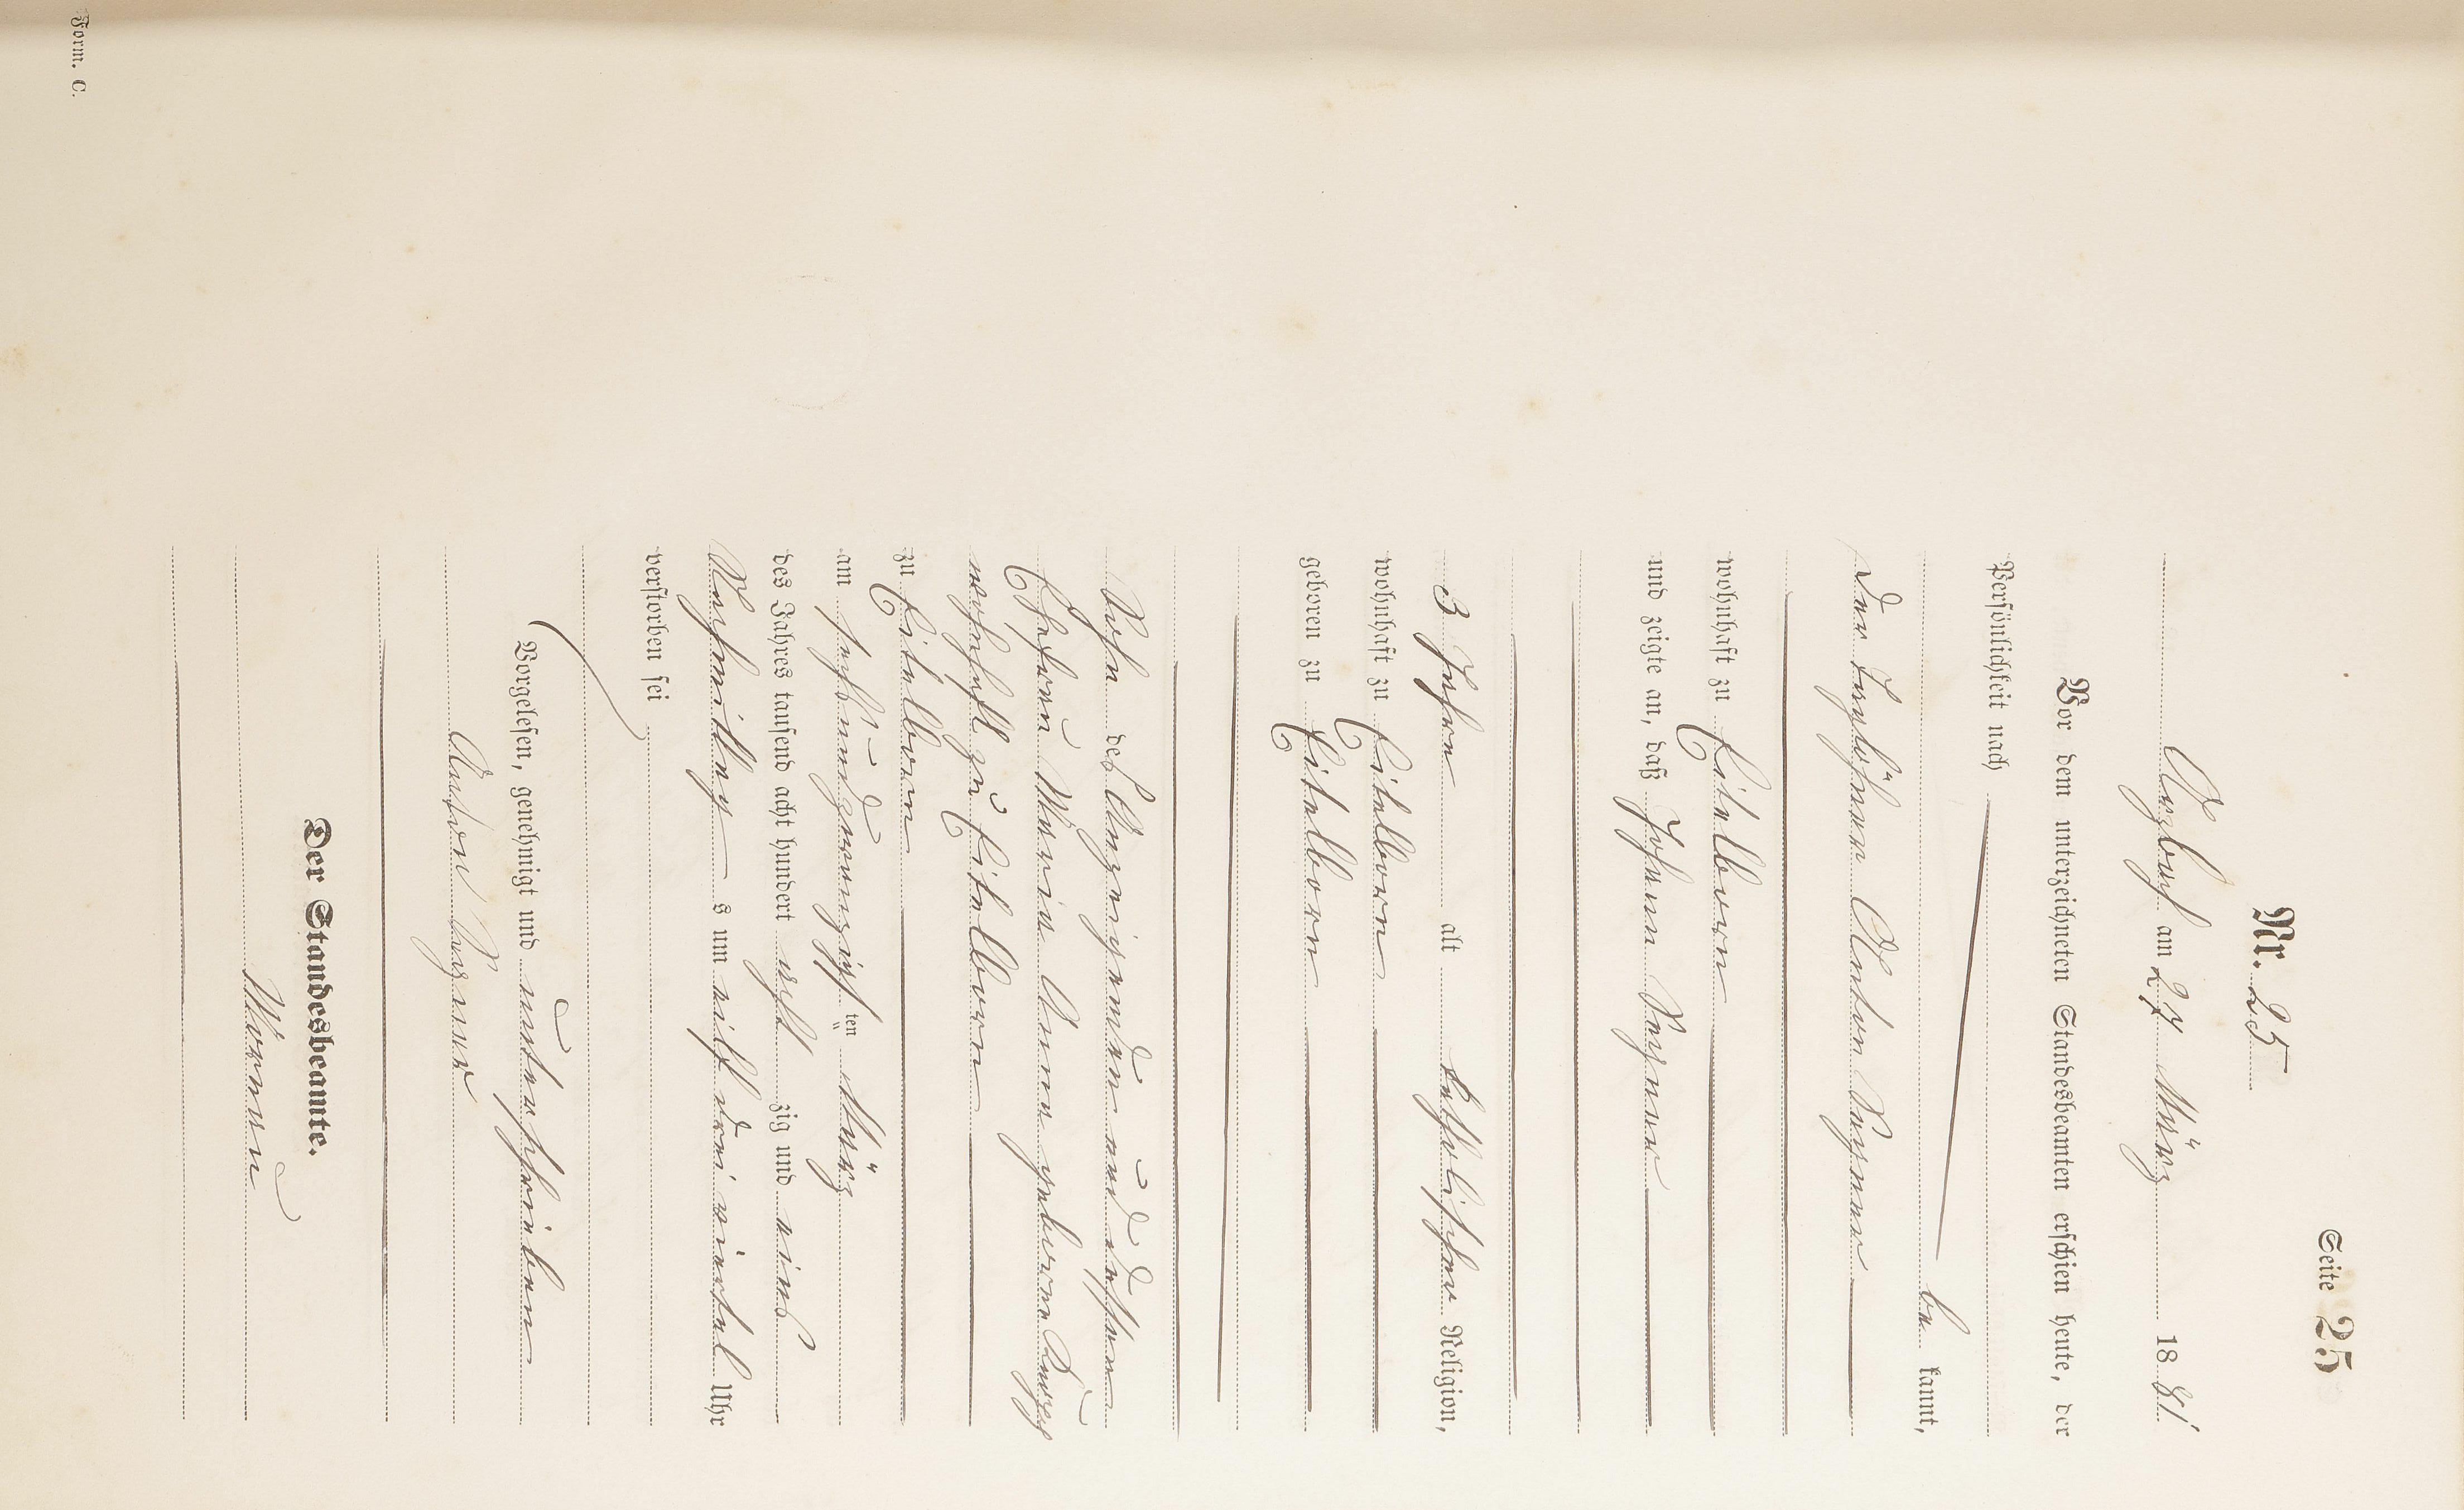 Seite 25
Nr. 25
Arzbach am 27 März 1881
Vor dem unterzeichneten Standesbeamten erschien heute, der
Persönlichkeit nach
be kannt,
der Taglöhner Anton
wohnhaft zu Eitelborn
und zeigte an, daß Johann
3 Jahre alt katholischer Religion,
wohnhaft zu Eitelborn
geboren zu Eitelborn
Sohn des Anzeigenden und dessen
Ehefrau Maria Anna geborene
wohnhaft zu Eitelborn
zu Eitelborn
am sechsundzwanzigsten März
des Jahres tausend acht hundert achtzig und eins
Vormittags um elf drei viertel Uhr
verstorben sei
Vorgelesen, genehmigt und unterschrieben
Anton
Der Standesbeamte.
Form. C.